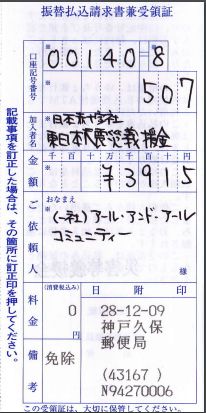 振替払込請求書兼受領証
口座記号番号
※ 00140-8
※ 507
加入者名
※ 日本赤十字社
東日本大震災義援金
金額
千 百 十 万 千 百 十 円
※ ¥3915
ご依頼人
おなまえ
※ (一社)アール・アンド・アール
コミュニティー
様
料金
(消費税込み)
0
円
日附印
28-12-09
神戸久保
郵便局
(43167)
N94270006
備考
免除
この受領証は、大切に保管してください。
記載事項を訂正した場合は、その箇所に訂正印を押してください。